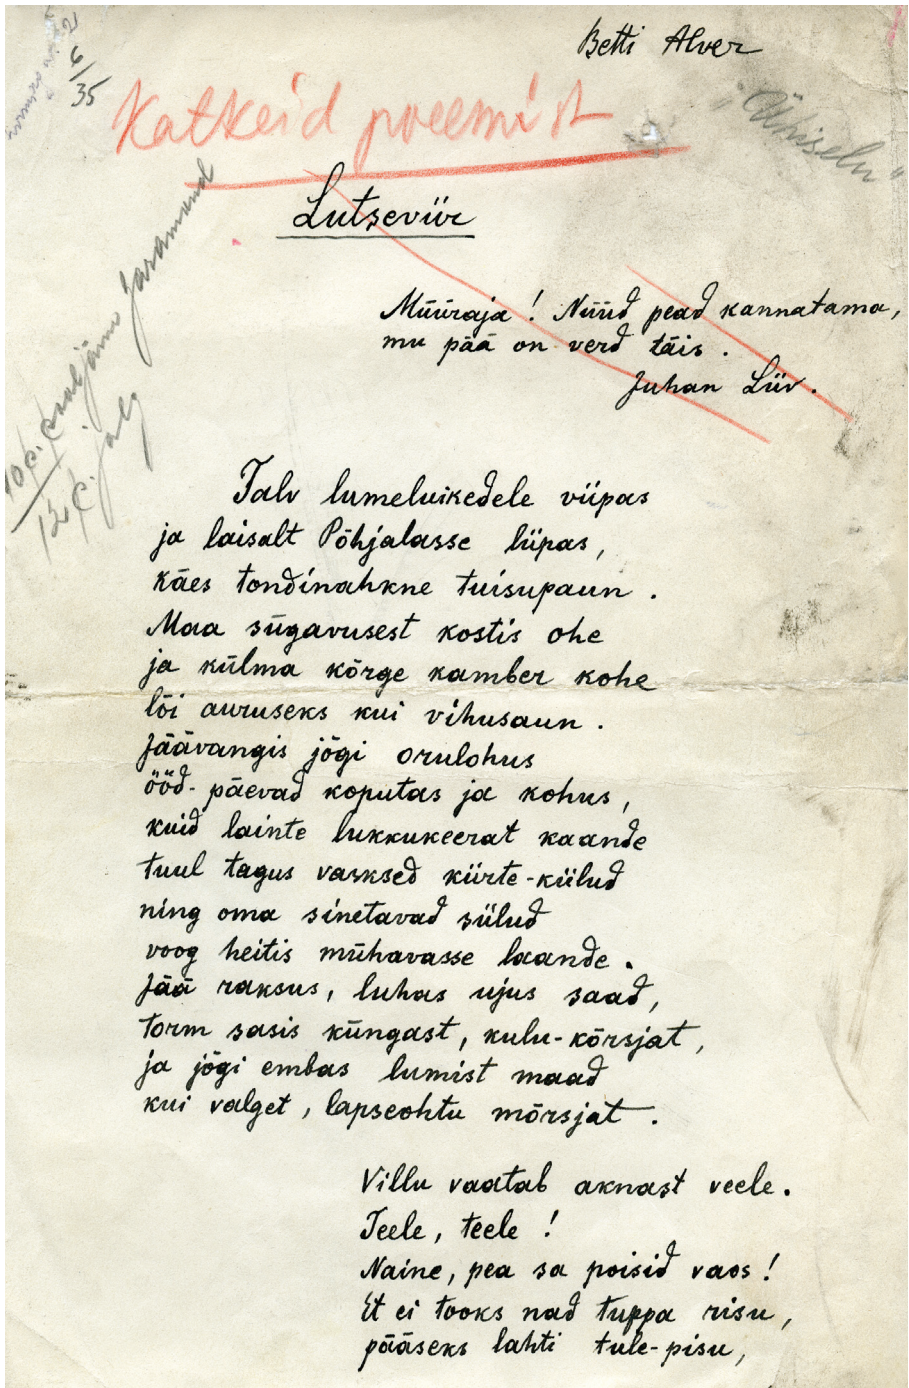 Betti Alver
6/35
Katkeid poeemist
"Ühiselu"
Lutseviir
Müüraja! Nüüd pead kannatama,
mu pää on verd täis.
Juhan Liiv.
Talv lumeluikedele viipas
ja laisalt Põhjalasse liipas,
käes tondinahkne tuisupaun.
Maa sügavusest kostis ohe
ja külma kõrge kamber kohe
lõi auruseks kui vihusaun.
Jäävangis jõgi orulohus
ööd-päevad koputas ja kohus,
kuid lainte lukkukeerat kaande
tuul tagus vasksed kiirte-kiilud
ning oma sinetavad siilud
voog heitis mühavasse laande.
Jää raksus, luhas ujus saad,
torm sasis küngast, kulu-kõrsjat,
ja jõgi embas lumist maad
kui valget, lapseohtu mõrsjat.
Villu vaatab aknast veele.
Teele, teele!
Naine, pea sa poisid vaos!
Et ei tooks nad tuppa risu,
pääseks lahti tule-pisu,